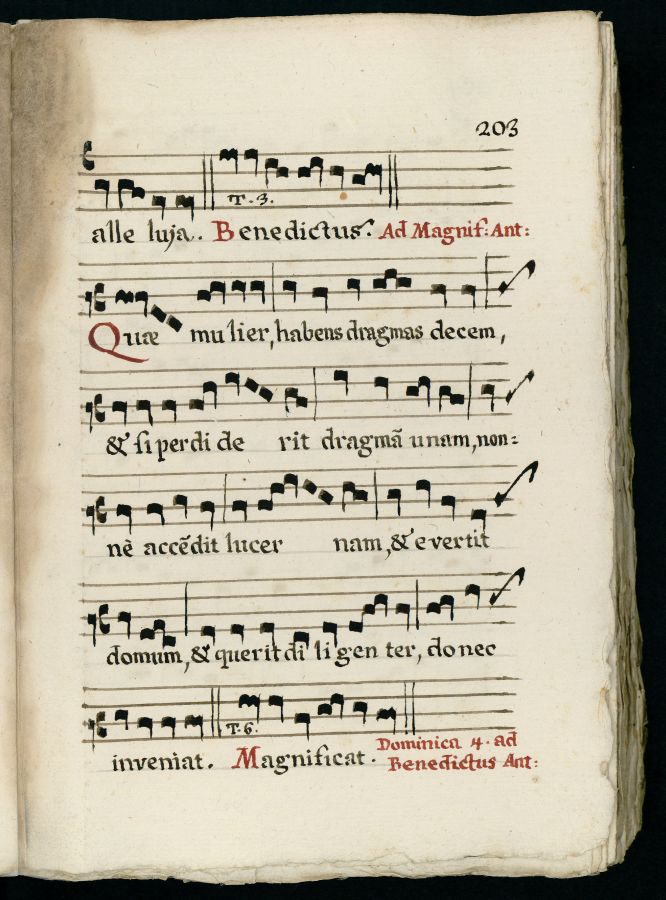 203
T. 3.
alle luja. Benedictus. Ad Magnif: Ant:
Quæ mulier, habens dragmas decem,
& si perdi de rit dragmã unam, non=
nè accẽdit lucer nam, & evertit
domum, & querit di li gen ter, donec
T. 6.
inveniat. Magnificat. Dominica 4. ad
Benedictus Ant: